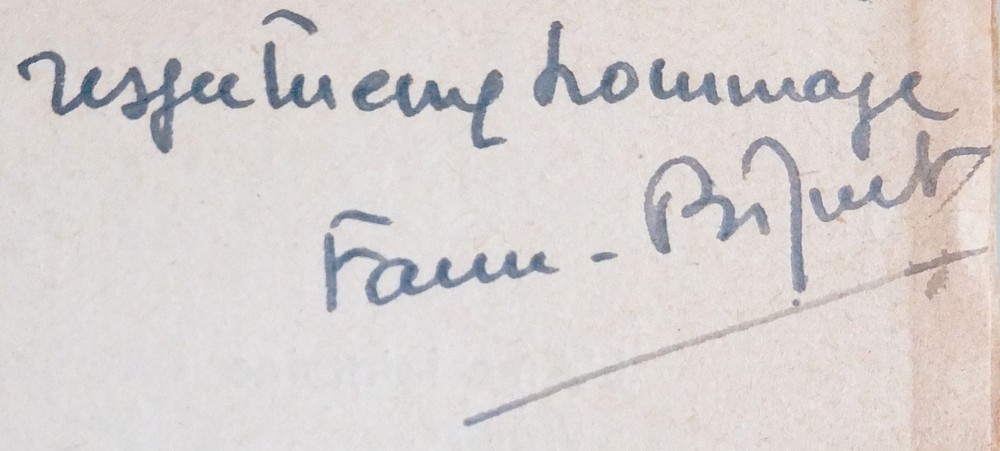 respectueux hommage
Faun - Biguet